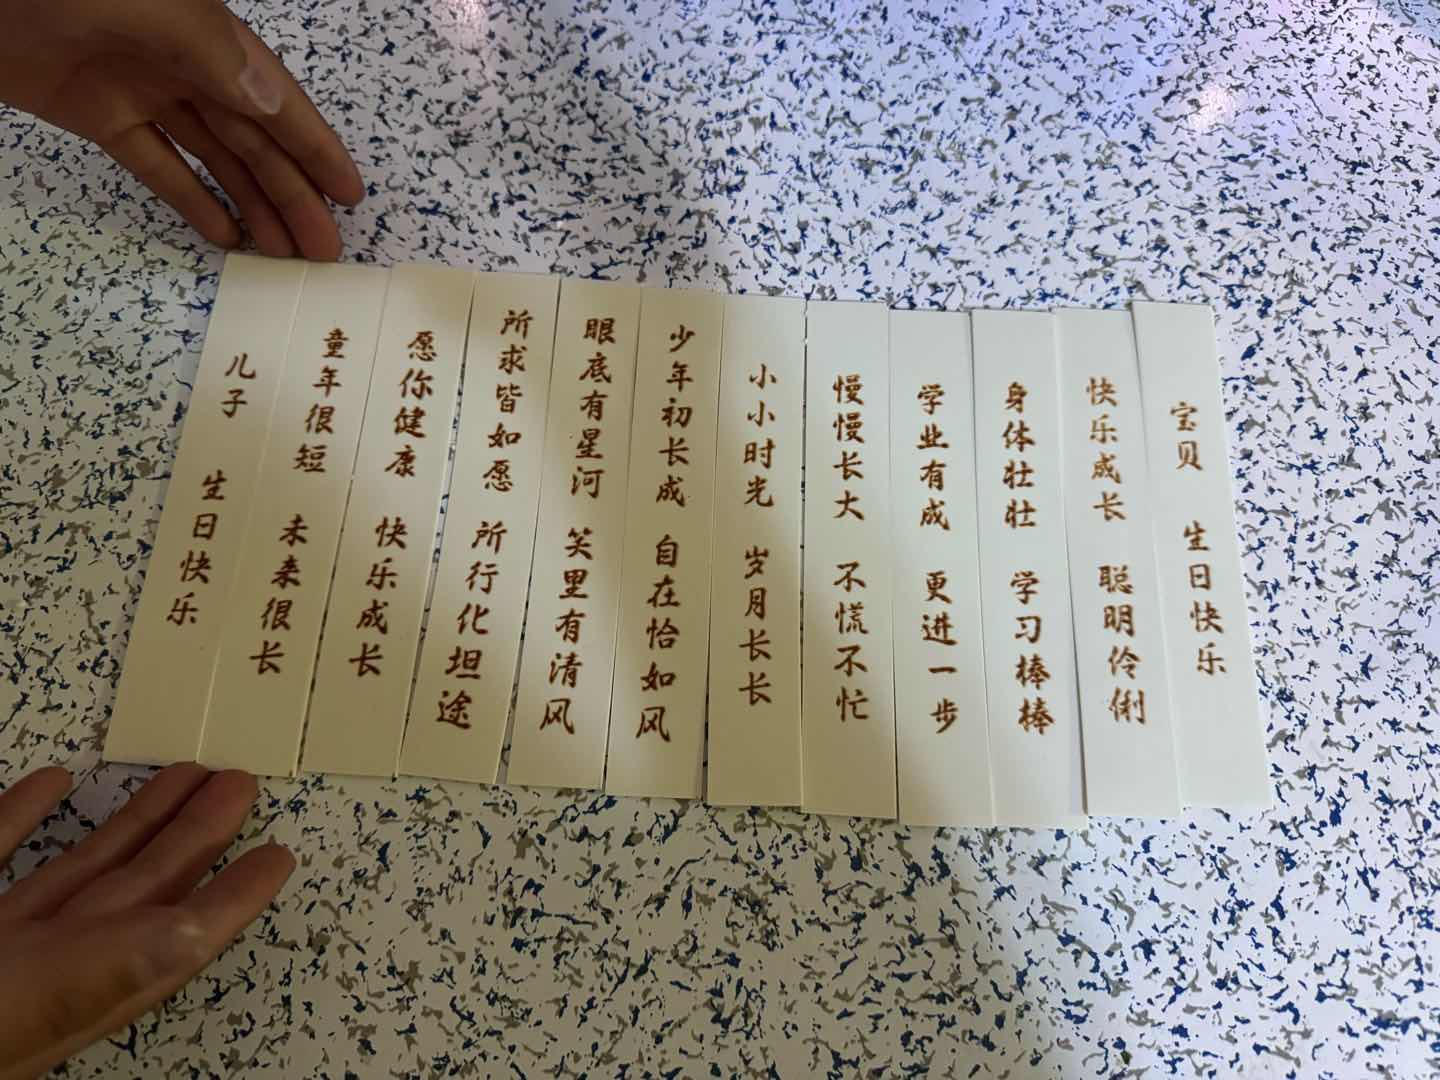 儿子 生日快乐
童年很短 未来很长
愿你健康 快乐成长
所求皆如愿 所行化坦途
眼底有星河 笑里有清风
少年初长成 自在恰如风
小小时光 岁月长长
慢慢长大 不慌不忙
学业有成 更进一步
身体壮壮 学习棒棒
快乐成长 聪明伶俐
宝贝 生日快乐